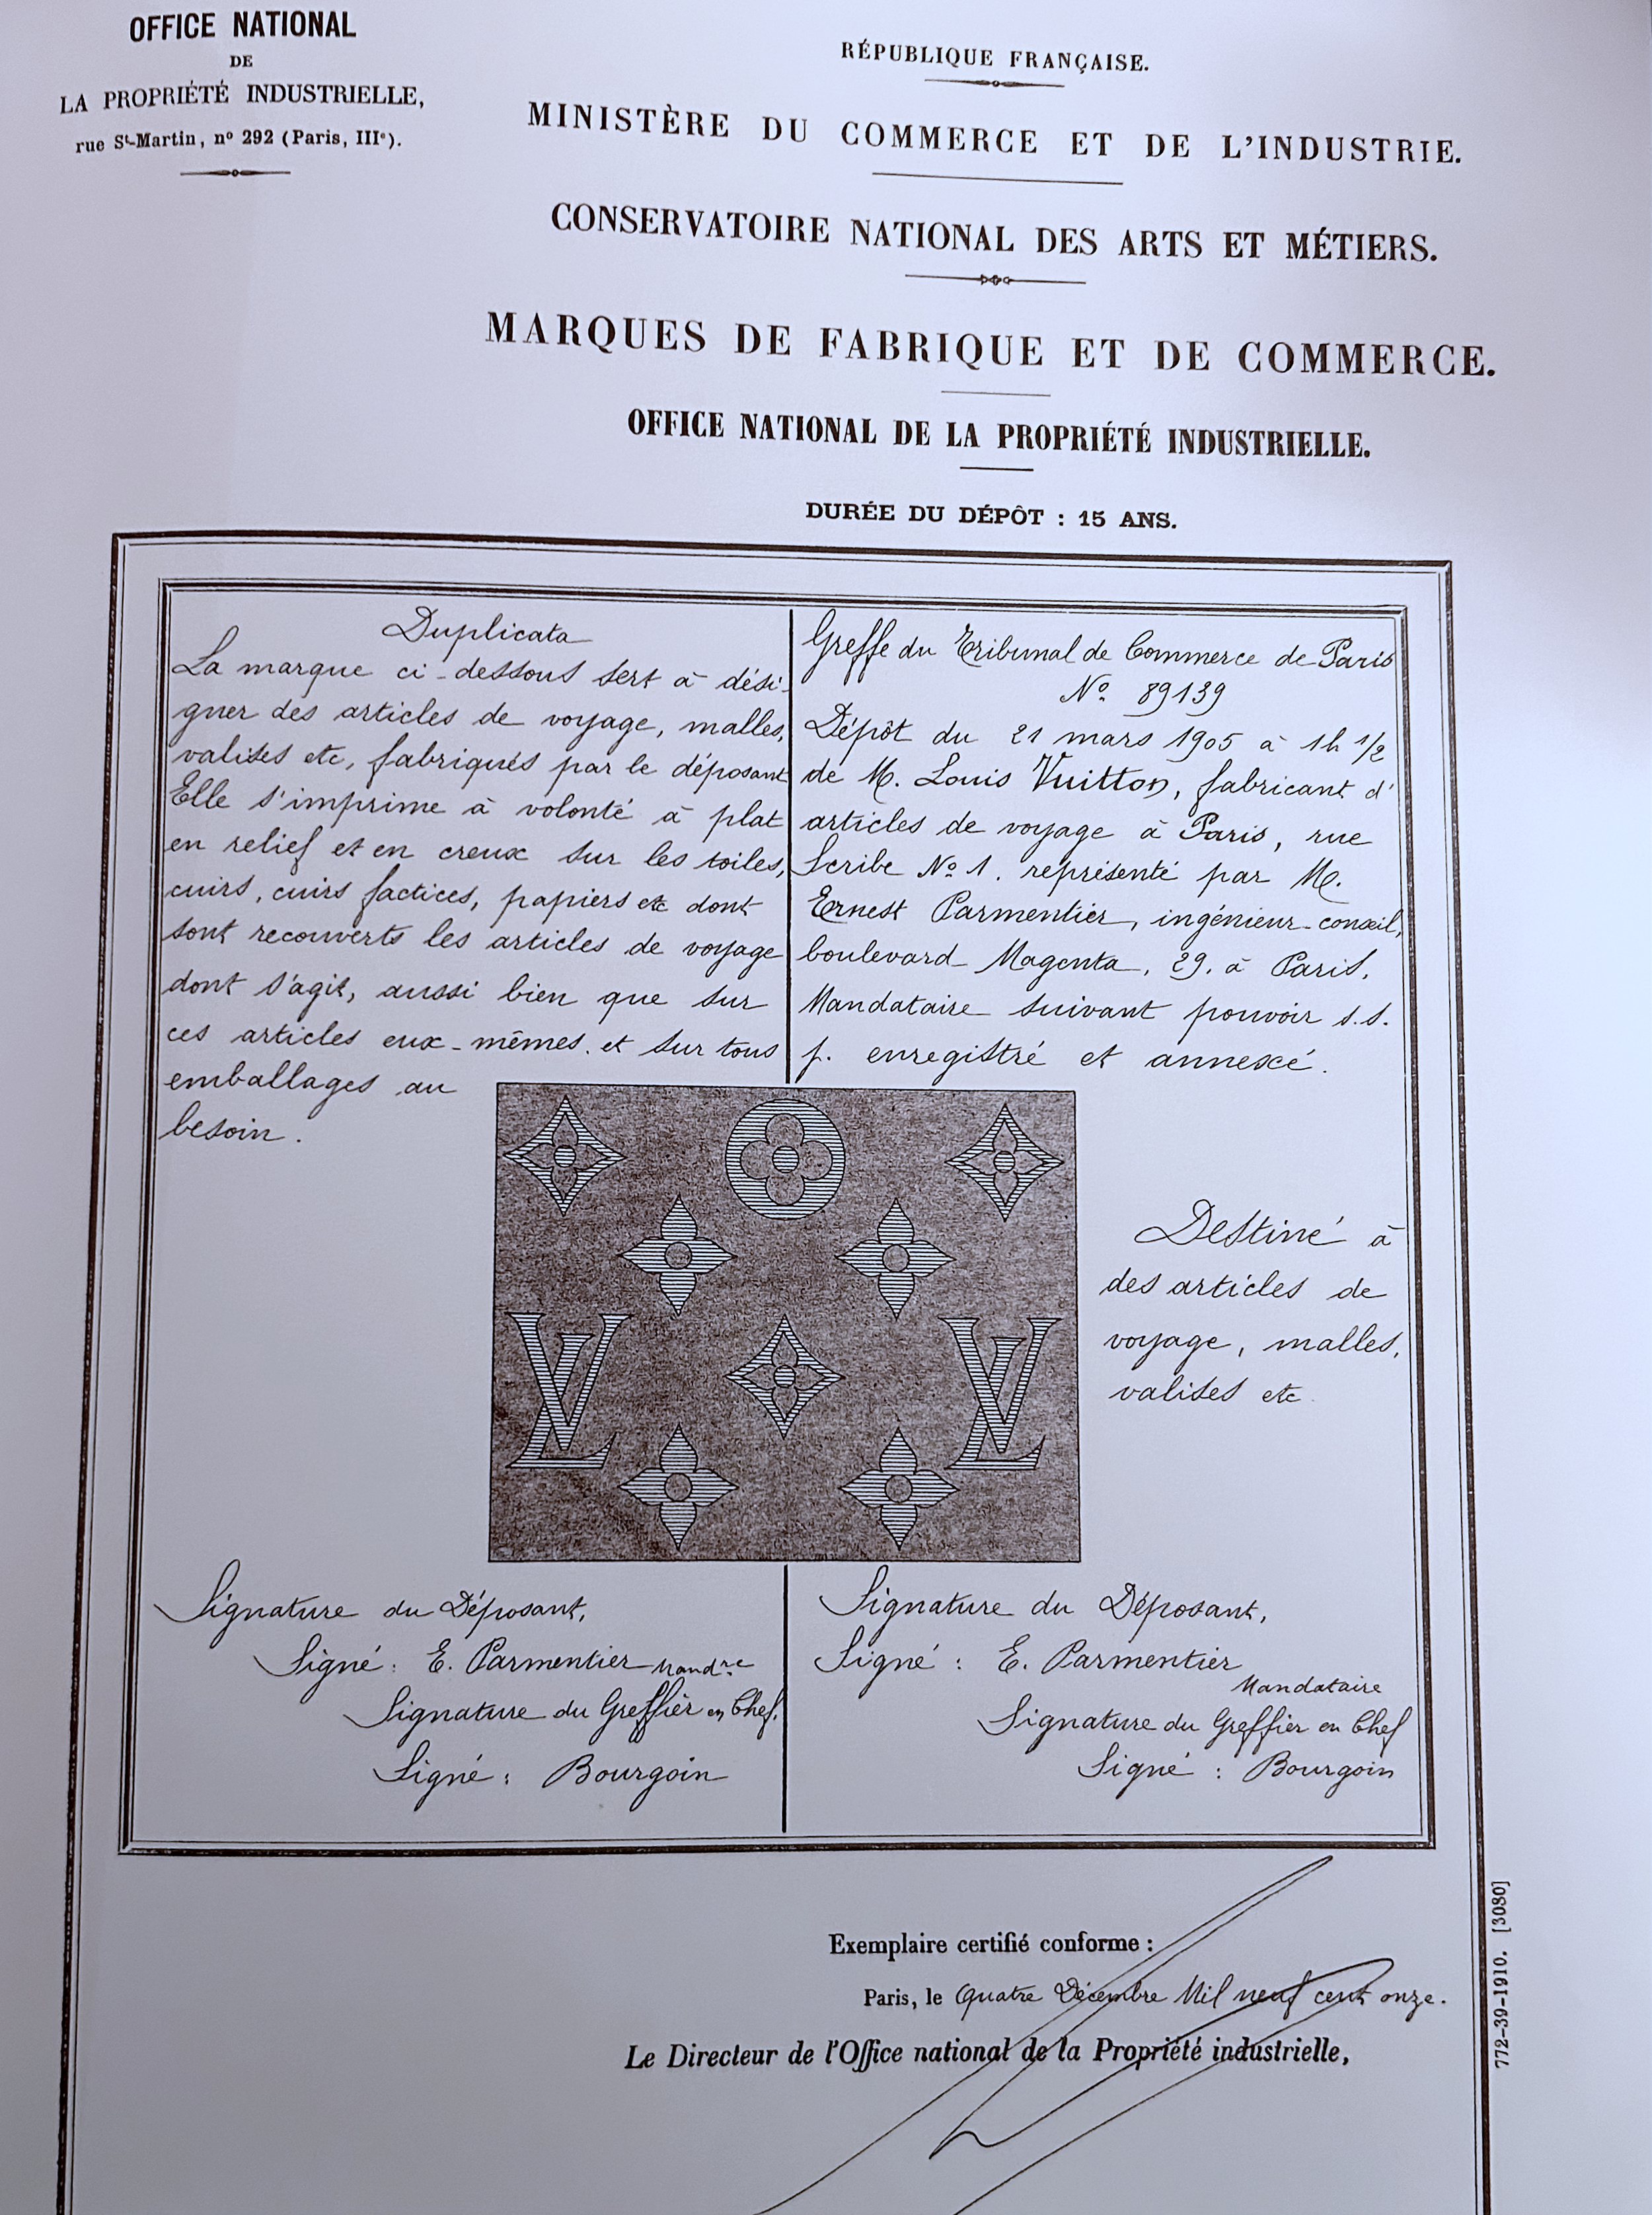 OFFICE NATIONAL
DE
LA PROPRIÉTÉ INDUSTRIELLE,
rue St-Martin, nº 292 (Paris, IIIe).
RÉPUBLIQUE FRANÇAISE.
MINISTÈRE DU COMMERCE ET DE L'INDUSTRIE.
CONSERVATOIRE NATIONAL DES ARTS ET MÉTIERS.
MARQUES DE FABRIQUE ET DE COMMERCE.
OFFICE NATIONAL DE LA PROPRIÉTÉ INDUSTRIELLE.
DURÉE DU DÉPÔT : 15 ANS.
Duplicata
La marque ci-dessous sert à dési-
gner des articles de voyage, malles,
valises etc, fabriqués par le déposant
Elle s'imprime à volonté à plat
en relief et en creux sur les toiles,
cuirs, cuirs factices, papiers etc dont
sont recouverts les articles de voyage
dont s'agit, aussi bien que sur
ces articles eux-mêmes. et sur tous
emballages au
besoin.
Greffe du Tribunal de Commerce de Paris
Nº 89139
Dépôt du 21 mars 1905 à 1h 1/2
de M. Louis Vuitton, fabricant d'
articles de voyage à Paris, rue
Scribe Nº 1. représenté par M.
Ernest Parmentier, ingénieur-conseil,
boulevard Magenta, 29. à Paris,
Mandataire suivant pouvoir s.s.
p. enregistré et annexé.
LV LV
Destiné à
des articles de
voyage, malles,
valises etc
Signature du Déposant,
Signé: E. Parmentier Mandre
Signature du Greffier en Chef.
Signé: Bourgoin
Signature du Déposant,
Signé : E. Parmentier
Mandataire
Signature du Greffier en Chef
Signé : Bourgoin
Exemplaire certifié conforme :
Paris, le Quatre Décembre Mil neuf cent onze.
Le Directeur de l'Office national de la Propriété industrielle,
772-39-1910. [3080]